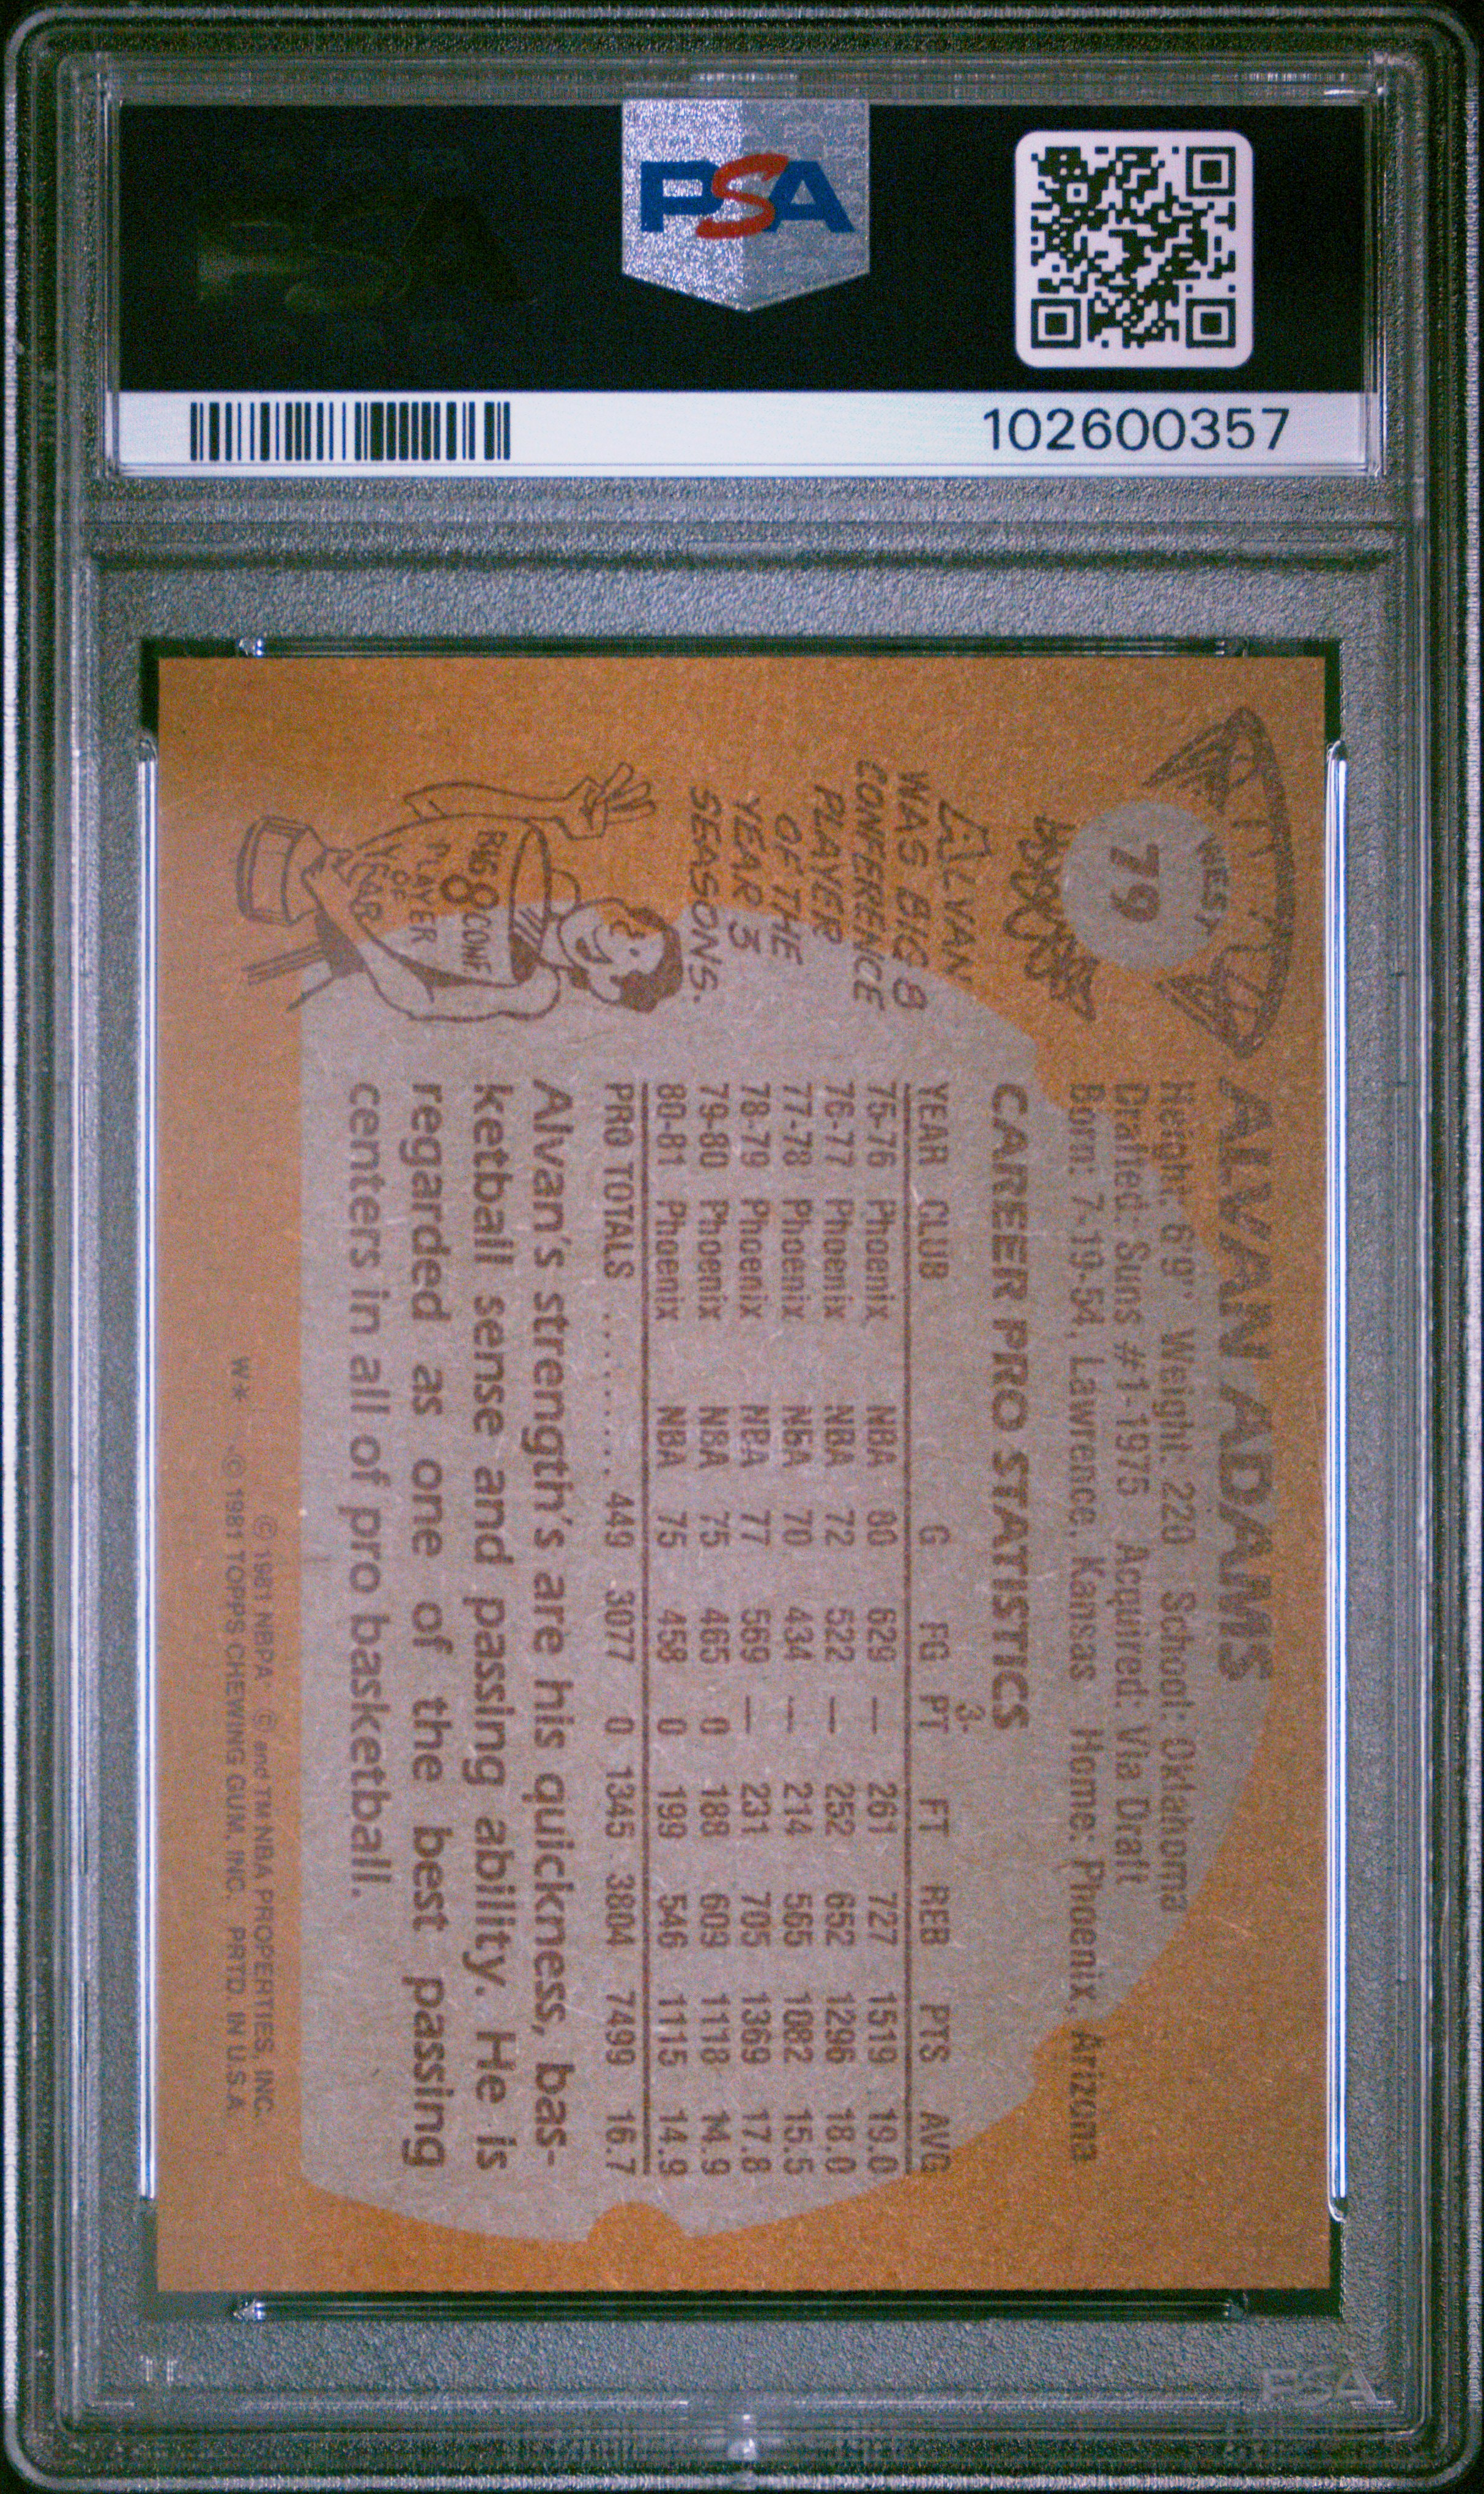 PSA
102600357
WEST
79
ALVAN ADAMS
Height: 6'9" Weight: 220 School: Oklahoma
Drafted: Suns #1-1975 Acquired: Via Draft
Born: 7-19-54, Lawrence, Kansas Home: Phoenix, Arizona
CAREER PRO STATISTICS
YEAR CLUB G FG 3-PT FT REB PTS AVG
75-76 Phoenix NBA 80 629 — 261 727 1519 19.0
76-77 Phoenix NBA 72 522 — 252 652 1296 18.0
77-78 Phoenix NBA 70 434 — 214 565 1082 15.5
78-79 Phoenix NBA 77 569 — 231 705 1369 17.8
79-80 Phoenix NBA 75 465 0 188 609 1118 14.9
80-81 Phoenix NBA 75 458 0 199 546 1115 14.9
PRO TOTALS ......... 449 3077 0 1345 3804 7499 16.7
Alvan's strength's are his quickness, bas-
ketball sense and passing ability. He is
regarded as one of the best passing
centers in all of pro basketball.
ALVAN
WAS BIG 8
CONFERENCE
PLAYER
OF THE
YEAR 3
SEASONS.
BIG
8 CONF.
PLAYER
OF
YEAR
© 1981 NBPA © and TM NBA PROPERTIES, INC.
W* © 1981 TOPPS CHEWING GUM, INC. PRTD. IN U.S.A.
PSA